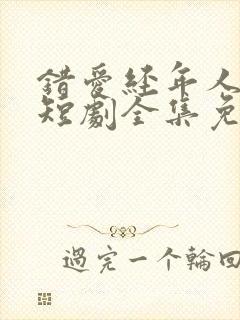 錯愛经年人
短劇全集免
過完一个輪回